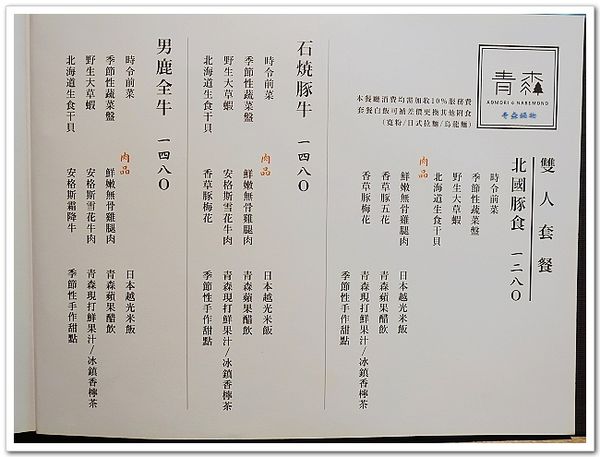 青森
AOMORI の NABEMONO
青森鍋物
本餐廳消費均需加收10%服務費
套餐白飯可補差價更換其他附食
(寬粉/日式拉麵/烏龍麵)
雙人套餐
北國豚食 一二八〇
時令前菜
季節性蔬菜盤
野生大草蝦
北海道生食干貝
肉品
鮮嫩無骨雞腿肉
香草豚五花
香草豚梅花
日本越光米飯
青森蘋果醋飲
青森現打鮮果汁/冰鎮香檸茶
季節性手作甜點
石燒豚牛 一四八〇
時令前菜
季節性蔬菜盤
野生大草蝦
北海道生食干貝
肉品
鮮嫩無骨雞腿肉
安格斯雪花牛肉
香草豚梅花
日本越光米飯
青森蘋果醋飲
青森現打鮮果汁/冰鎮香檸茶
季節性手作甜點
男鹿全牛 一四八〇
時令前菜
季節性蔬菜盤
野生大草蝦
北海道生食干貝
肉品
鮮嫩無骨雞腿肉
安格斯雪花牛肉
安格斯霜降牛
日本越光米飯
青森蘋果醋飲
青森現打鮮果汁/冰鎮香檸茶
季節性手作甜點